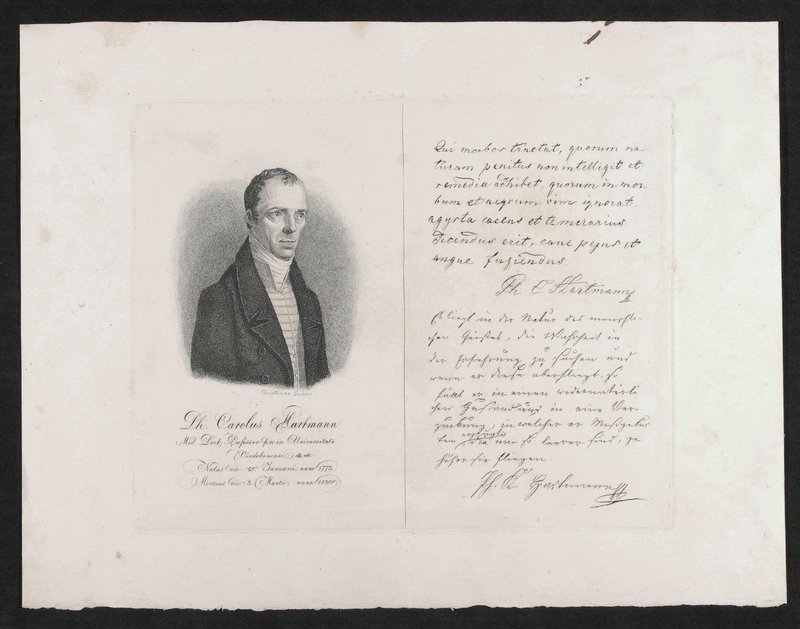 Ph. Carolus Hartmann
Med. Doct. Professor in Universitate
Vindobonensi etc. etc.
Natus die Januarii, anno 1773
Mortuus die 5. Martii, anno 1830
Qui morbos tractat, quorum na-
turam penitus non intelligit et
remedia adhibet, quorum in mor-
bum et aegrum vim ignorat,
agyrta caecus et temerarius
dicendus erit, cane pejus et
angue fugiendus.
Ph C Hartmann
Es liegt in der Natur des menschli-
chen Geistes, die Wahrheit in
der Erfahrung zu suchen und
wenn er diese überfliegt, so
fällt er in einen widernatürli
chen Zustand, in eine Ver-
zückung, in welcher er Mißgebur
ten erzeugt, die um so leerer sind, je
höher sie fliegen.
Ph. K. Hartmann